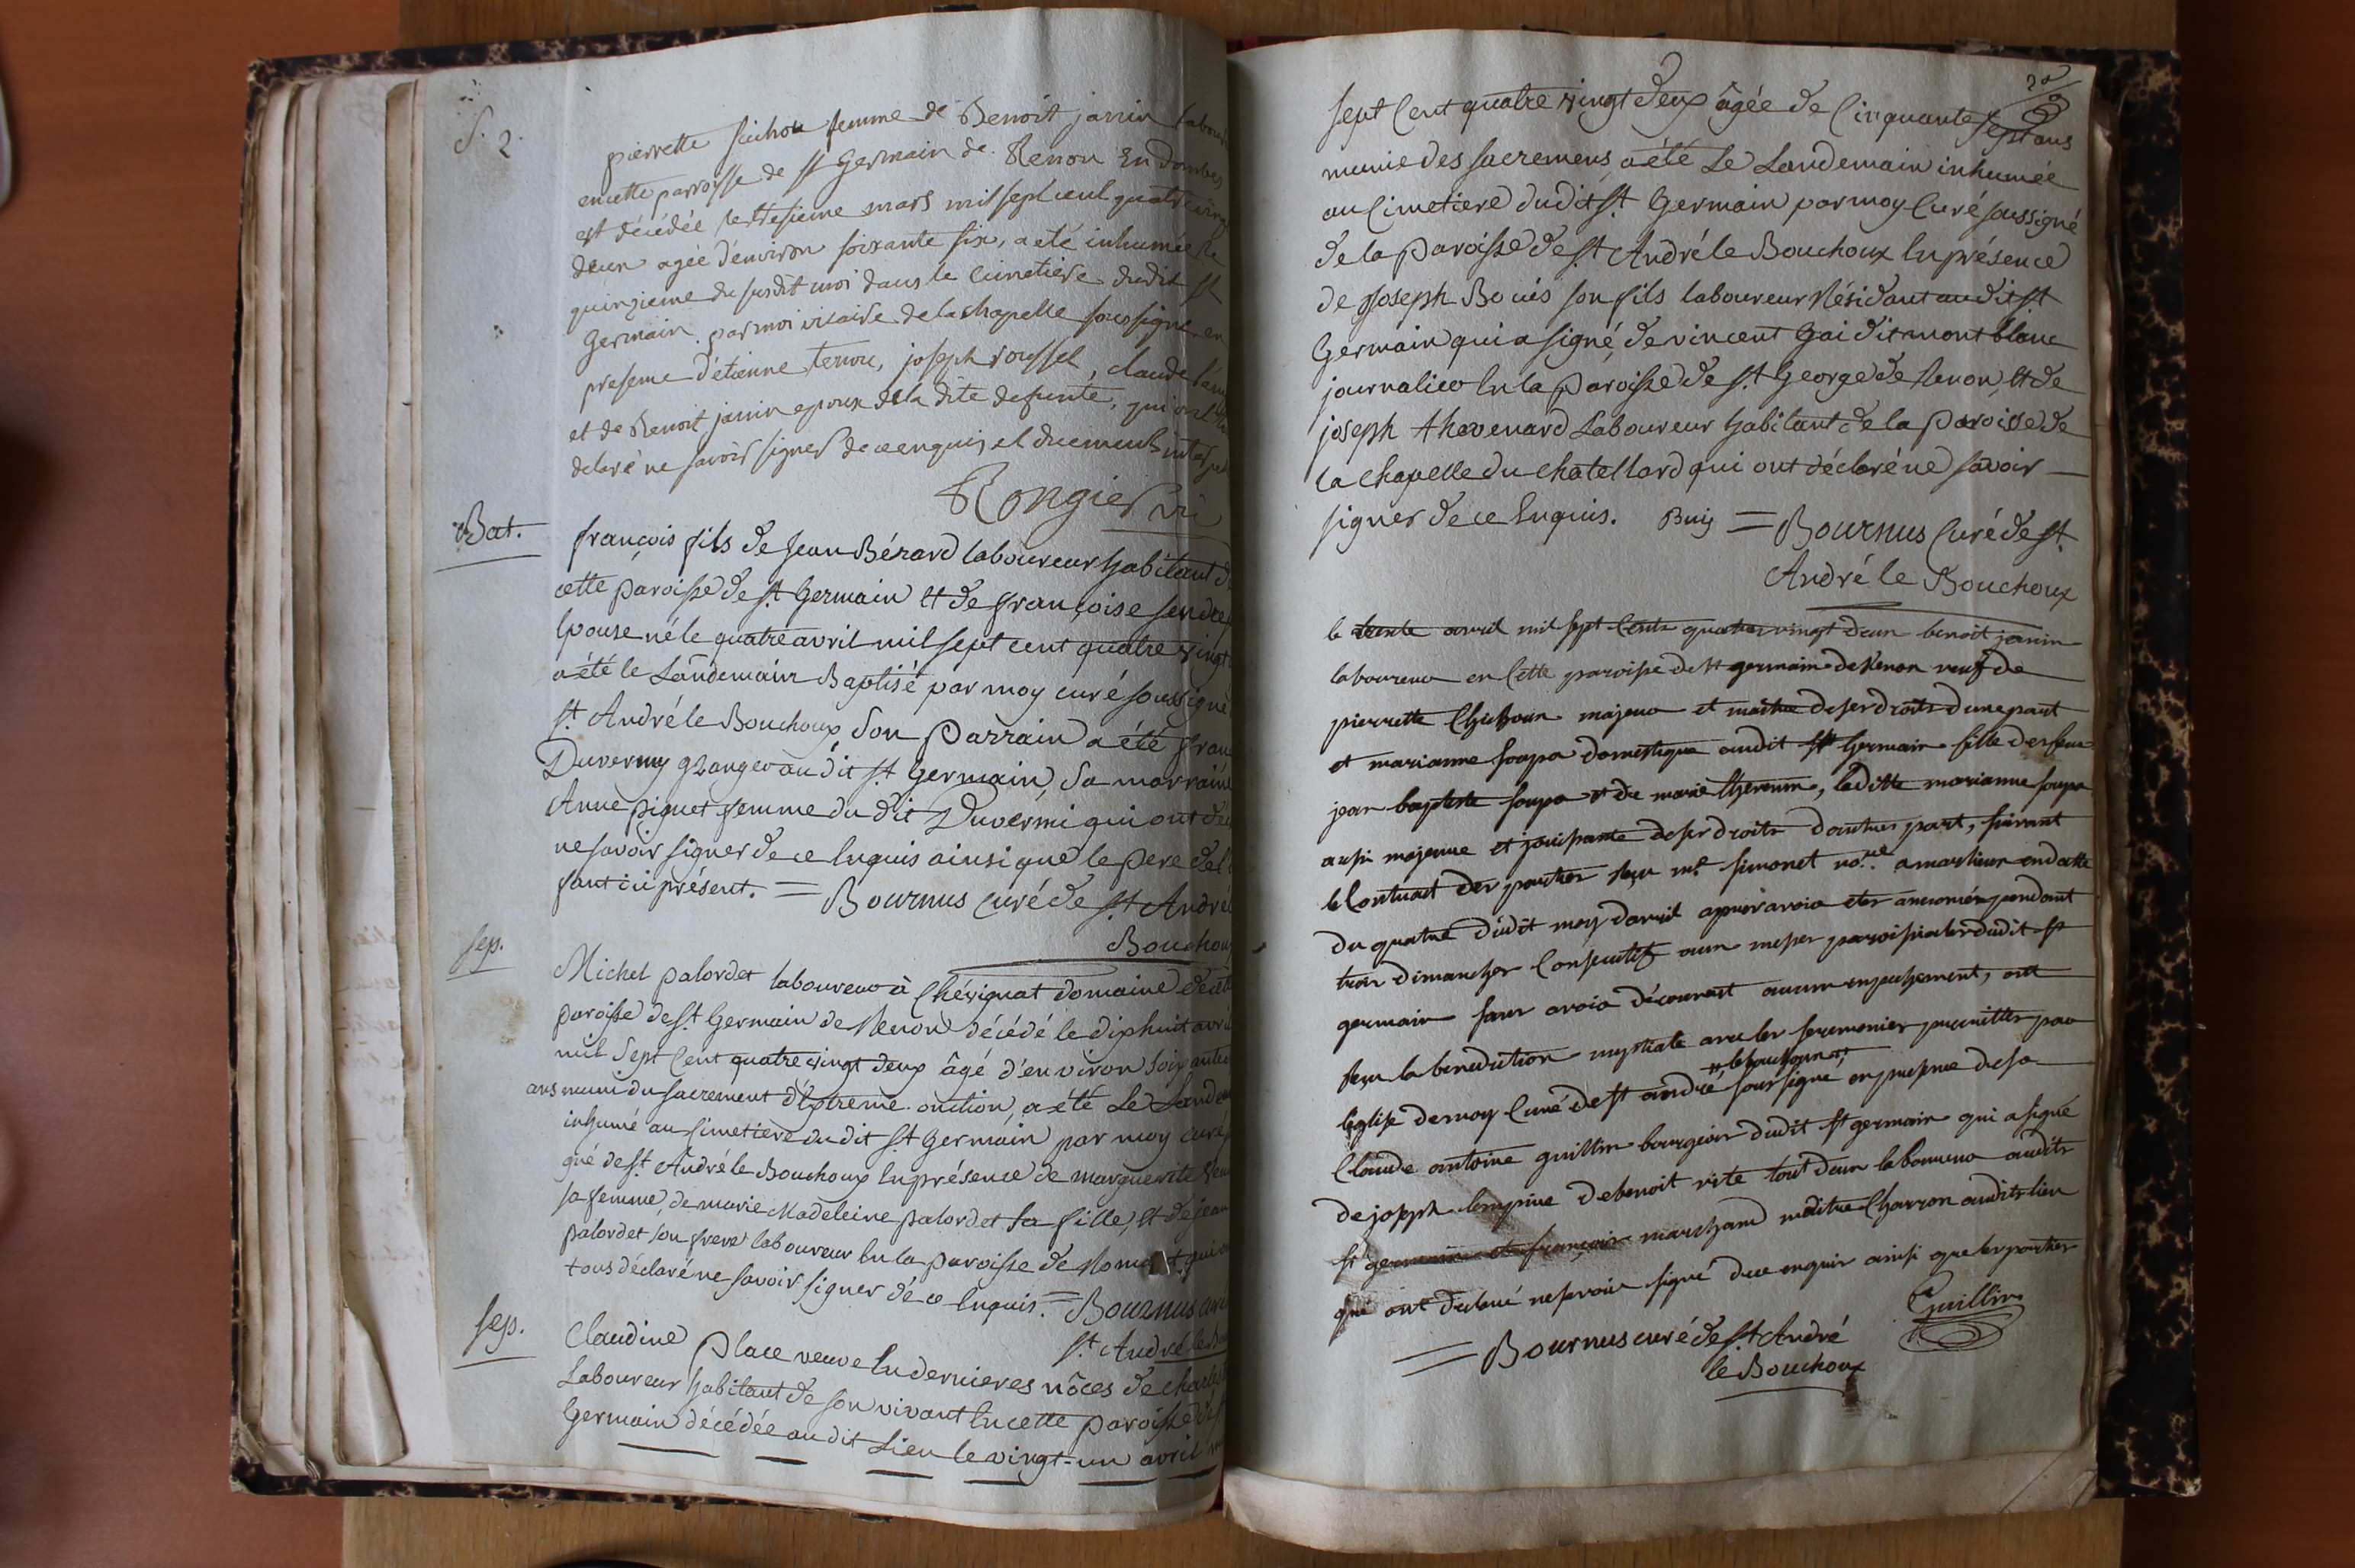 S. 2.
pierrette femme de Benoit janin labour
en cette parroisse de st Germain de Renon En Dombes
est décédée le tresieme mars mil sept cent quatre vingt
deux agée d'environ soixante six, a eté inhumée le
quinzieme du susdit moi dans le cimetiere dudit st
Germain par moi vicaire de la chapelle soussigné en
presence d'étienne terrou, joseph roussel, claude
et de Benoit janin epoux de la dite defunte, qui ont
declaré ne savoir signer de ce enquis et duement
Rongier vi
Bat.
françois fils de Jean Bérard laboureur habitant d
cette paroisse de st. Germain Et de françoise
Epouse né le quatre avril mil sept cent quatre vingt
a été le Landemain Baptisé par moy curé soussigné
st. André le Bouchoux Son Parrain a été fran
Duvermy granger au dit st. Germain, Sa marraine
Anne piguet femme du dit Duvermi qui ont dé
ne savoir signer de ce Enquis ainsi que le pere de l
fant ici présent. = Bournus curé de st André
Bouchou
sep.
Michel palordet laboureur à Chérignat domaine de cett
paroisse de st. Germain de Renon décédé le dix huit avri
mil Sept Cent quatre vingt deux âgé d'environ soixante
ans muni du sacrement d'Extreme onction, a été Le Lande
inhumé au Cimetiere du dit st Germain par moy curé
gné de st. André le Bouchoux En présence de marguerite
sa femme, de marie Madeleine palordet sa fille, Et de jean
palordet son frere laboureur En la paroisse de
tous déclaré ne savoir signer de ce Enquis. = Bournus curé
st. André le Bou
sep.
Claudine Place veuve En dernieres nôces de charles
Laboureur habitant de son vivant En cette paroisse de st
Germain décédée au dit Lieu le vingt-un avril m
sept Cent quatre vingt deux âgée de Cinquante sept ans
munie des sacremens, a été Le Landemain inhumée
au Cimetiere du dit st. Germain par moy Curé soussigné
de la paroisse de st. André le Bouchoux En présence
de Joseph son fils laboureur Résidant au dit st
Germain qui a signé, de vincent Gai dit mont blanc
journalier En la paroisse de st. George de Renon, Et de
joseph thevenard Laboureur habitant de la paroisse de
la Chapelle du Chatellard qui ont déclaré ne savoir
signer de ce Enquis. = Bournus Curé de st.
André le Bouchoux
le trente avril mil sept Cents quatre vingt deux benoit janin
laboureur en Cette paroisse de st germain de Renon veuf de
pierrette majeur et maitre de ses droits d'une part
et marianne soupa domestique audit st Germain fille de feu
jean baptiste soupa et de marie thevenin, laditte marianne soupa
aussi majeure et jouissante de ses droits d'autre part, suivant
le Contract des parties reçu me simonet no.re a marlieux en datte
du quatre dudit moy d'avril apres avoir etes anoncés pendant
trois dimanches Consecutifs aux messes paroissiales dudit st
germain sans avoir découvert aucun empechement, ont
reçu la benediction nuptiale avec les seremonies permittes par
l'eglise de moy Curé de st andre # le bouchoux # soussigné en presence de sr
Claude antoine guillin bourgeois dudit st germain qui a signé
de joseph de benoit rite tout deux laboureur audit
st germain et françois marchand maitre Charron audit lieu
qui ont declaré ne savoir signé de ce enquis ainsi que les parties
Guillin
= Bournus curé de st. André
le Bouchoux